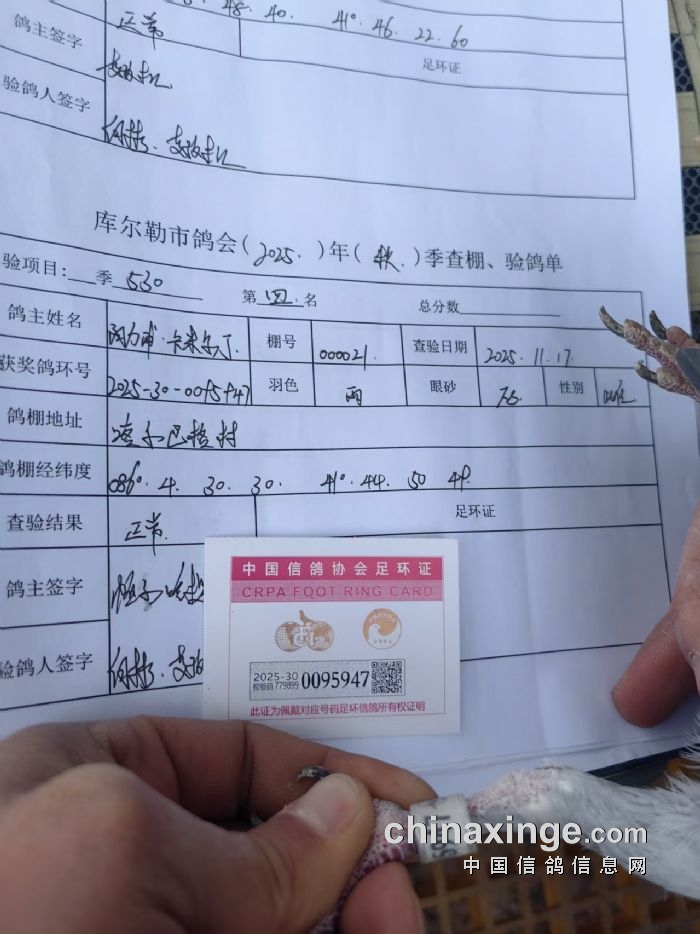 48. 40. 41°. 46. 22. 60
正常
鸽主签字
足环证
验鸽人签字
库尔勒市鸽会(2025.)年(秋.)季查棚、验鸽单
验项目: 季 530 第四名 总分数
鸽主姓名 卡米尔丁. 棚号 000021. 查验日期 2025.11.17
获奖鸽环号 2025-30-0095947 羽色 雨 眼砂 性别 雌
鸽棚地址
鸽棚经纬度 086°. 4. 30. 30. 41°. 44. 50 49
查验结果 正常. 足环证
鸽主签字
验鸽人签字
中国信鸽协会足环证
CRPA FOOT RING CARD
2025-30
校验码779899 0095947
此证为佩戴对应号码足环信鸽所有权证明
chinaxinge.com
中国信鸽信息网